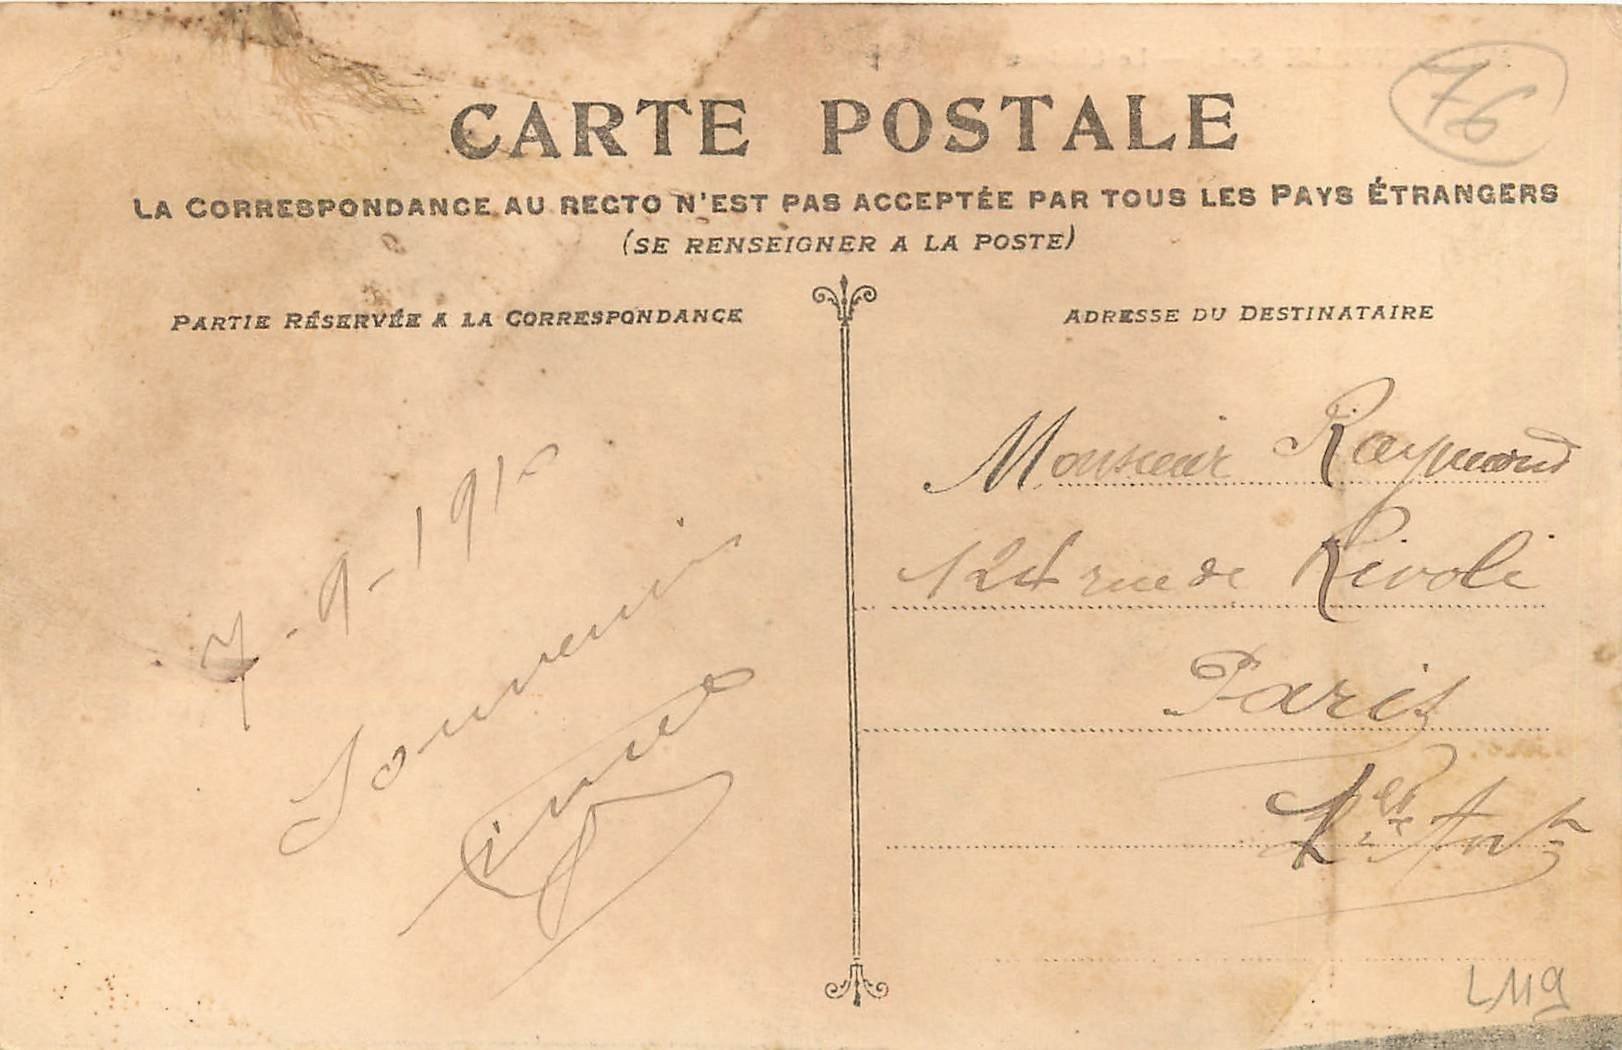 76
CARTE POSTALE
LA CORRESPONDANCE AU RECTO N'EST PAS ACCEPTÉE PAR TOUS LES PAYS ÉTRANGERS
(SE RENSEIGNER A LA POSTE)
PARTIE RÉSERVÉE A LA CORRESPONDANCE
7-9-1910
Souvenir
ADRESSE DU DESTINATAIRE
Monsieur Raymond
124 rue de Rivoli
Paris
L119